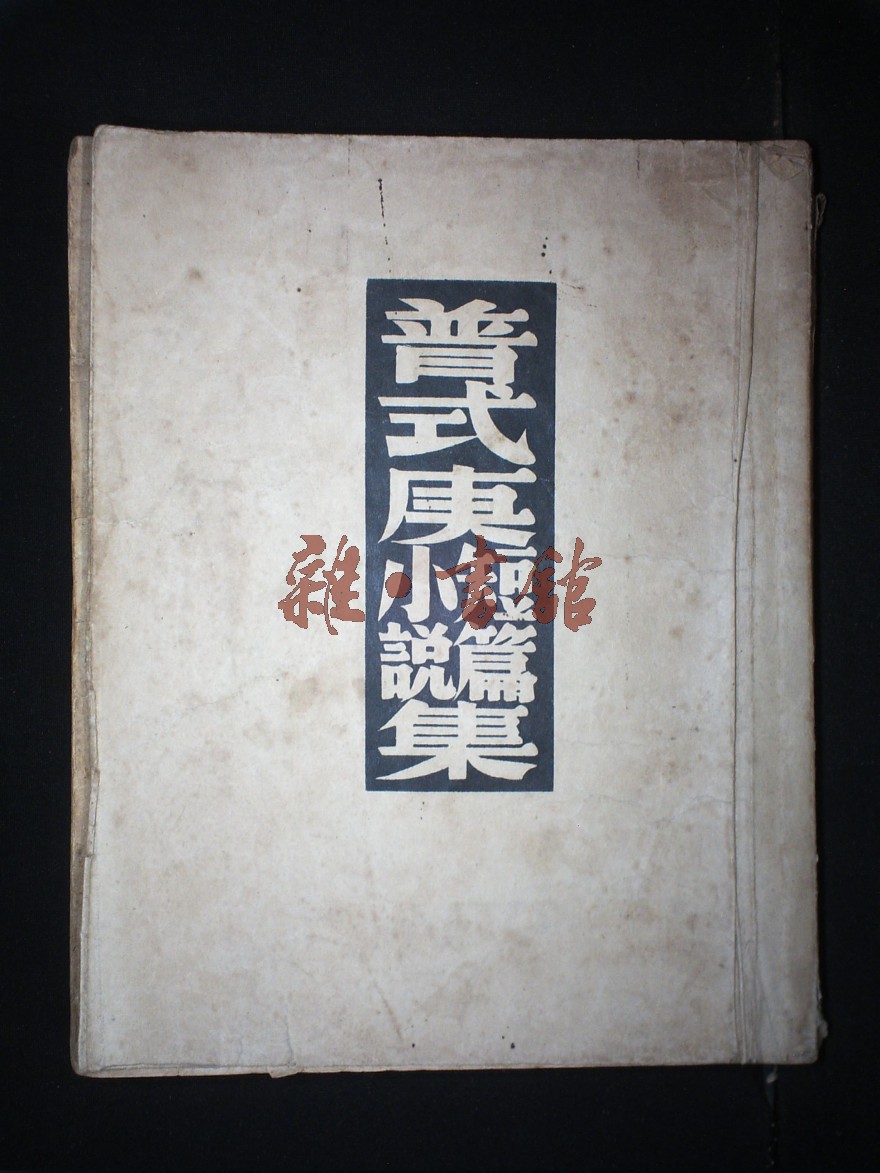 普式庚短篇小説集
雜·書館